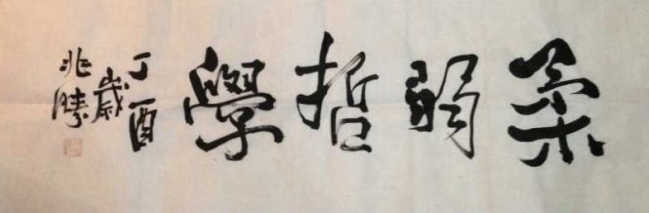 柔弱哲學
丁酉
歲
兆晴